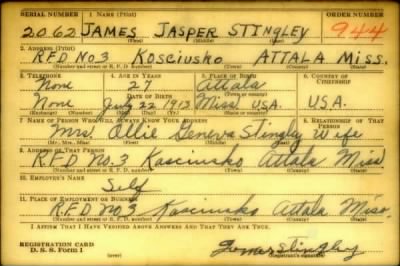 SERIAL NUMBER 1. NAME (Print) ORDER NUMBER
2062 JAMES JASPER STINGLEY 944
(First) (Middle) (Last)
2. ADDRESS (Print)
RFD No 3 Kosciusko ATTALA Miss.
(Number and street or R. F. D. number) (Town) (County) (State)
3. TELEPHONE 4. AGE IN YEARS 5. PLACE OF BIRTH 6. COUNTRY OF CITIZENSHIP
None 27 Attala
DATE OF BIRTH (Town or county)
None July 22 1913 Miss. USA. USA.
7. NAME OF PERSON WHO WILL ALWAYS KNOW YOUR ADDRESS RELATIONSHIP OF THAT PERSON
Mrs. Ollie Geneva Stingley Wife
(Mr., Mrs., Miss) (First) (Middle) (Last)
8. ADDRESS OF THAT PERSON
R.F.D No. 3 Kosciusko Attala Miss
(Number and street or R. F. D. number) (Town) (County) (State)
10. EMPLOYER'S NAME
Self
11. PLACE OF EMPLOYMENT OR BUSINESS
R.F.D No 3 Kosciusko Attala Miss.
(Number and street or R. F. D. number) (Town) (County) (State)
I AFFIRM THAT I HAVE VERIFIED ABOVE ANSWERS AND THAT THEY ARE TRUE.
REGISTRATION CARD
D. S. S. Form 1 James Stingley